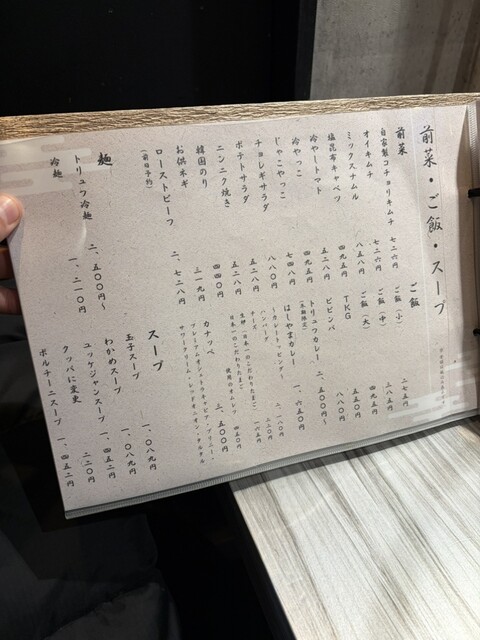 前菜・ご飯・スープ
前菜
自家製コチョリキムチ 七二六円
オイキムチ 七二六円
ミックスナムル 八五八円
塩昆布キャベツ 四九五円
冷やしトマト 五二八円
冷やっこ 四九五円
じゃこやっこ 七四八円
チョレギサラダ 八八〇円
ポテトサラダ 五二八円
ニンニク焼き 五二八円
韓国のり 四四〇円
お供ネギ 三一九円
ローストビーフ 二、七二八円
(前日予約)
麺
トリュフ冷麺 二、五〇〇円〜
冷麺 一、二一〇円
ご飯
ご飯(小) 二七五円
ご飯(中) 三八五円
ご飯(大) 四九五円
TKG 五五〇円
ビビンバ 八八〇円
トリュフカレー 二、五〇〇円〜
はしやまカレー 一、六五〇円
〜カレートッピング〜
ハンバーグ
チーズ 一六五円
生卵「日本一のこだわりたまご」
日本一のこだわりたまご
使用のオムレツ
カナッペ 二、五〇〇円
スープ
玉子スープ 一、〇八九円
わかめスープ 一、〇八九円
ユッケジャンスープ 一、四五二円
クッパに変更 二二〇円
ポルチーニスープ 一、四五二円